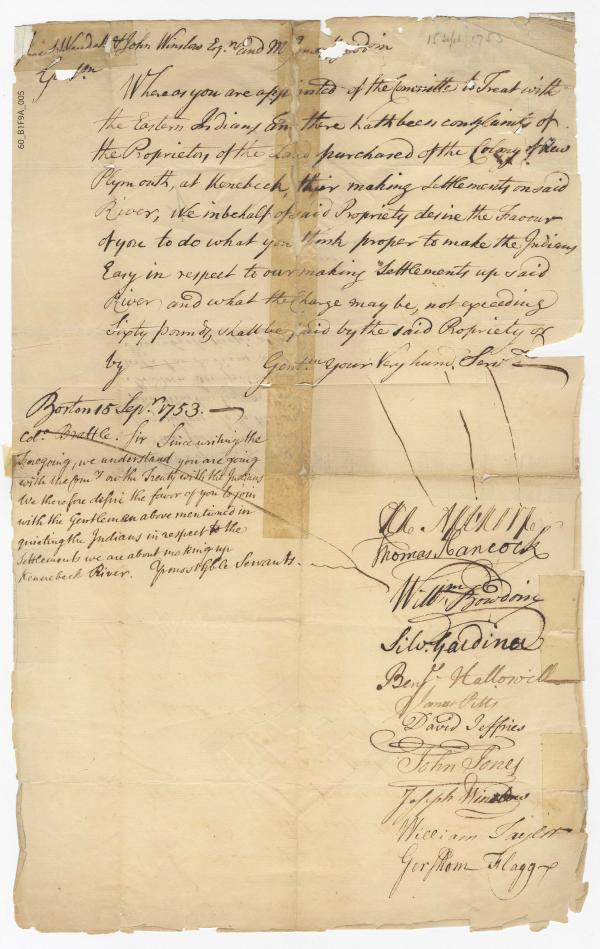 60_B1F9A_005
15 Sept 1753
& John Winslow Esqrs and Mr James Bowdoin
Gentn
Whereas you are appointed of the Committe to Treat with
the Eastern Indians and there hath been complaints of
the Proprietors of the Land purchased of the Colony of New
Plymouth, at Kenebeck, their making Settlements on said
River, We in behalf of said Propriety desire the Favour
of you to do what you think proper to make the Indians
Easy in respect to our making Settlements up said
River, and what the Charge may be, not exceeding
Sixty pounds, shall be paid by the said Propriety
by Gentmn Your Very hum. Servts
Boston 15 Sepr 1753.
Colo Brattle. Sir Since writing the
foregoing, we understand you are going
with the Commrs on the Treaty with the Indians
We therefore desire the favor of you to join
with the Gentlemen above mentioned in
quieting the Indians in respect to the
Settlements we are about making up
Kennebeck River. Your most Hble Servants.
Apthorp
Thomas Hancock
Willm Bowdoin
Silv. Gardiner
Benja Hallowell
James Pitts
David Jeffries
John Jones
Joseph Winslow
William Taylor
Gershom Flagg